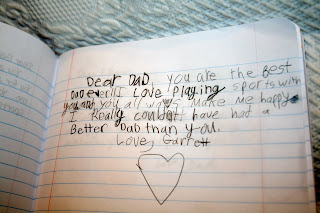 Dear DaD, you are the Best
DaD ever!! I Love Playing sports with
you and you all ways make me happy
I Really couldnt have had a
Better Dad than you.
Love, Garrett